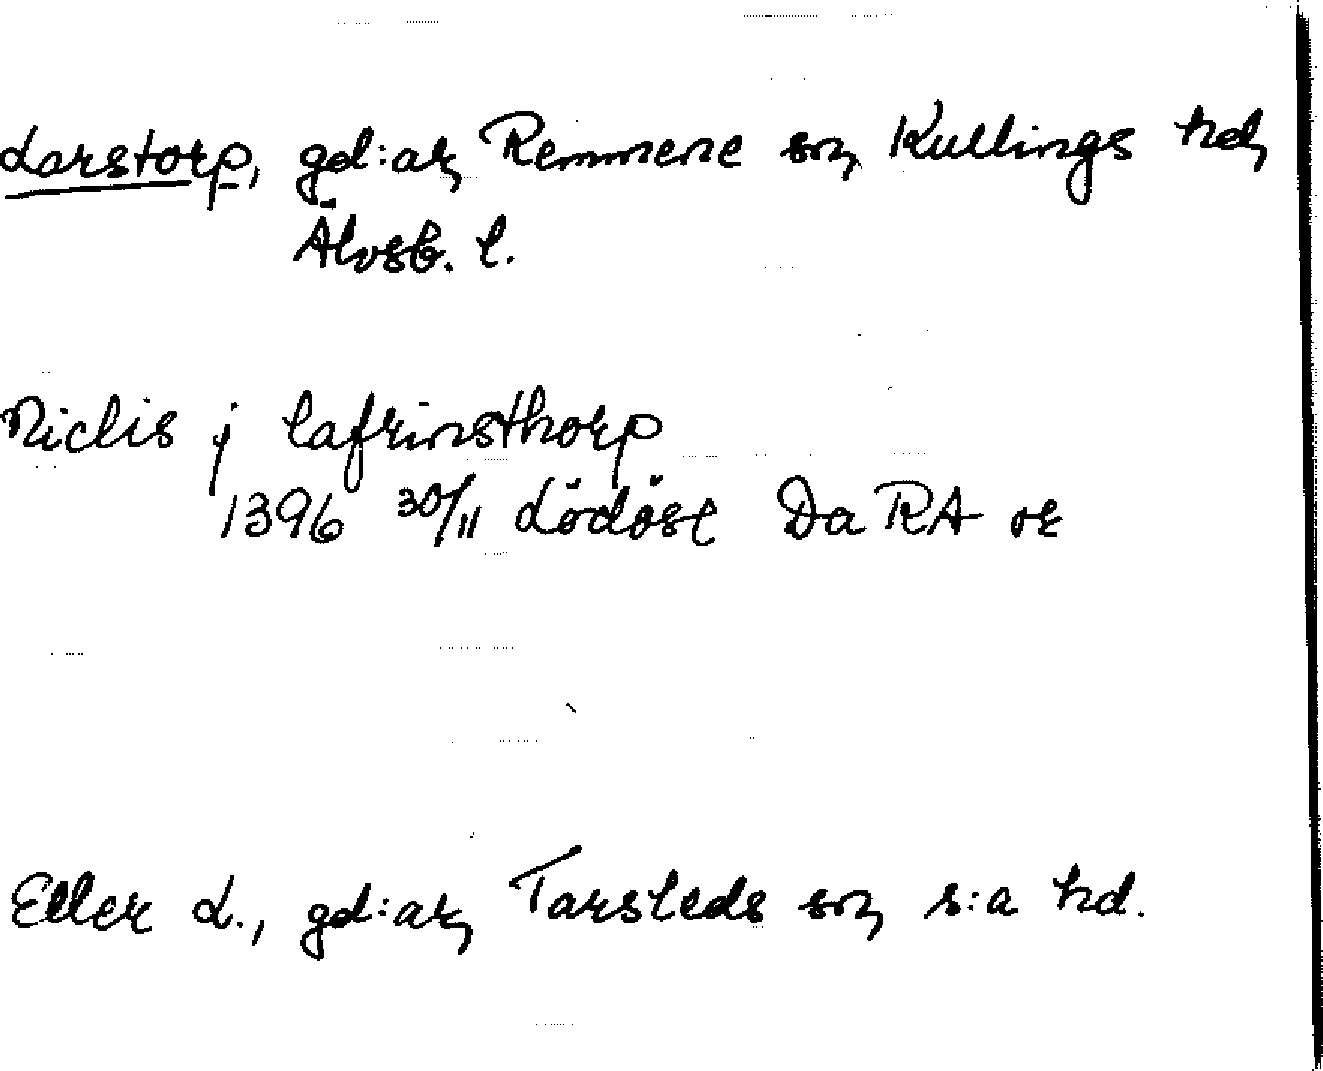 Larstorp, gd:ar, Remmene sn, Kullings hd,
Älvsb. l.
Niclis j lafrinsthorp
1396 30/11 Lödöse Da RA or
Eller L., gd:ar, Tarsleds sn, s:a hd.